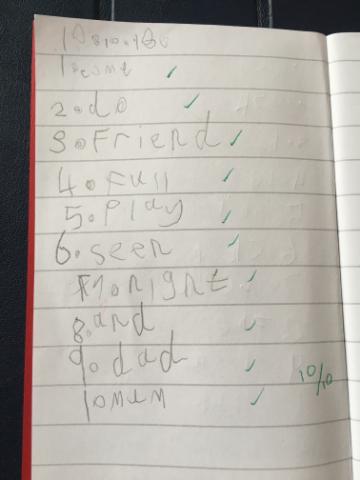 1 come
2. do
3. Friend
4. Full
5. Play
6. seen
7. night
8. and
9. dad
10/10
10 mum